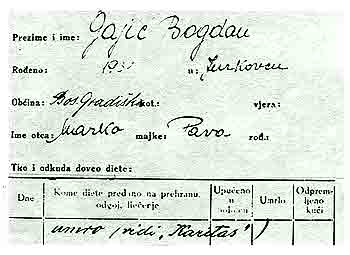 Prezime i ime: Gajic Bogdan
Rođeno: 193 u: Jurkovcu
Općina: Bos Gradiška kot.: vjera:
Ime otca: Marko majke: Pava rođ.:
Tko i odkuda doveo diete:
Dne Kome diete predano na prehranu, odgoj, liečenje Upućeno u Umrlo Odpremljeno kući
umro (vidi „Karitas")